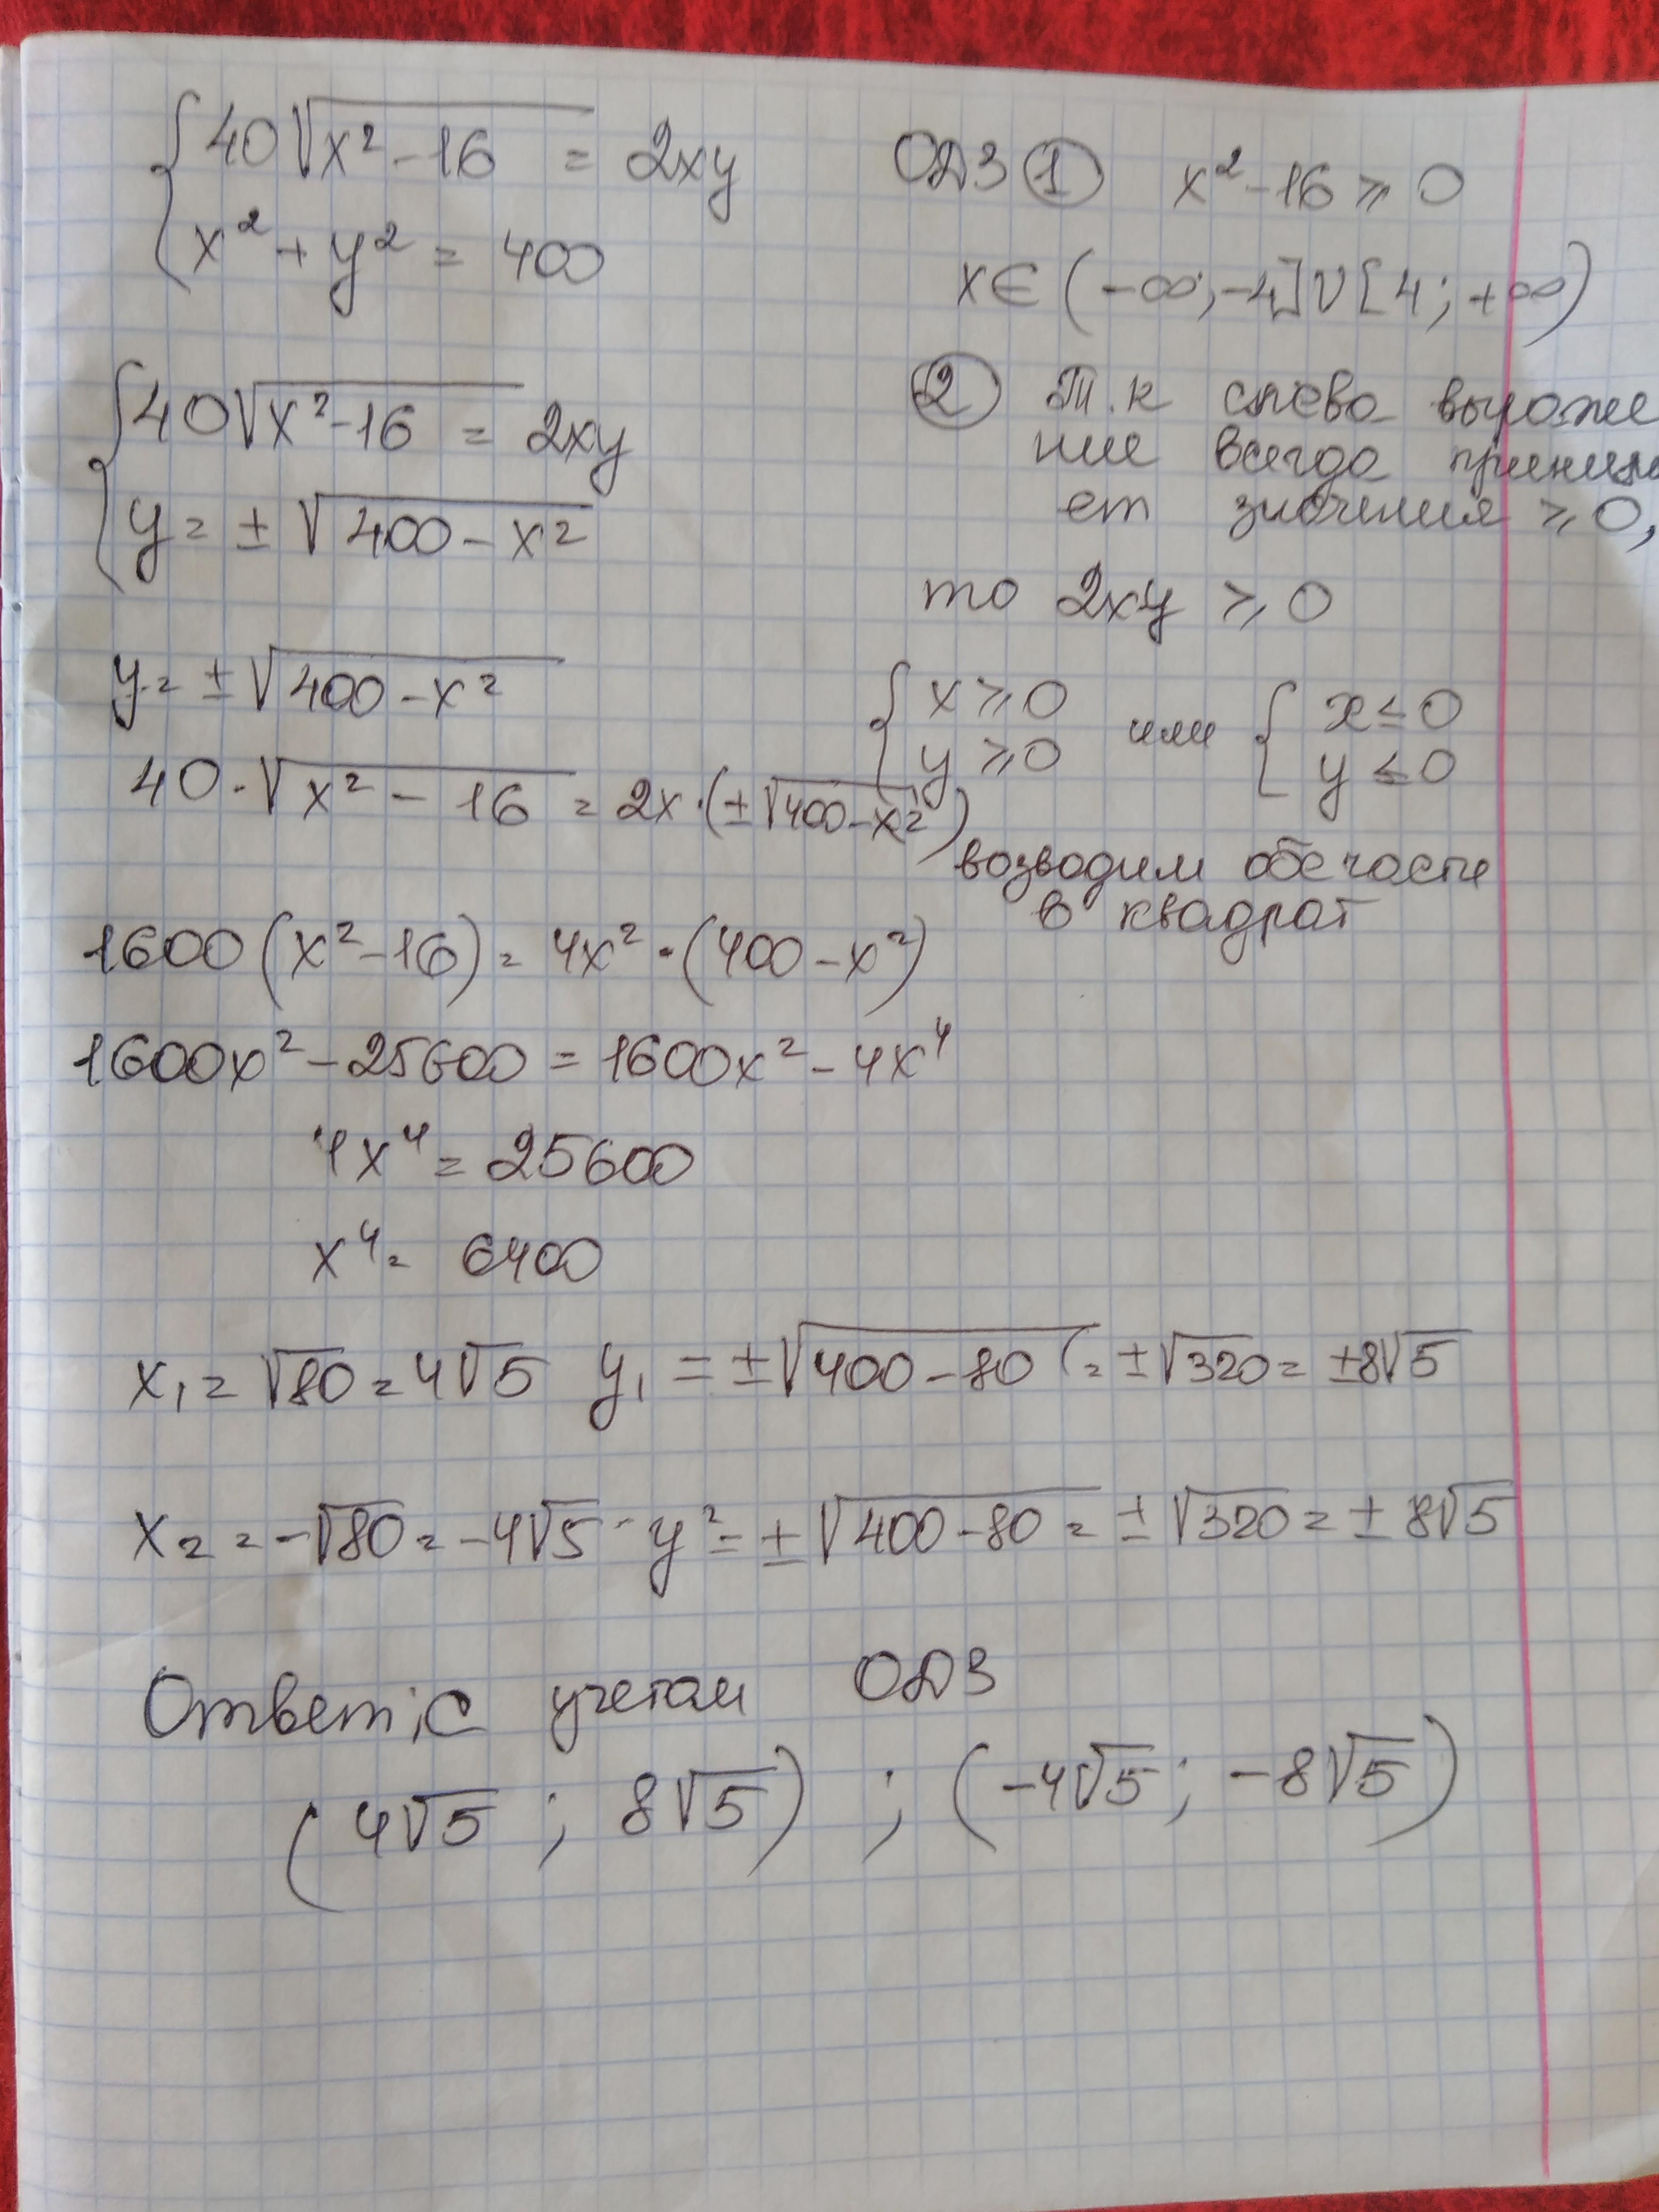 { 40√(x² - 16) = 2xy
x² + y² = 400
ОДЗ ① x² - 16 ⩾ 0
x ∈ (-∞; -4] ∪ [4; +∞)
{ 40√(x² - 16) = 2xy
y = ± √(400 - x²)
② Т.к слева выраже
ние всегда принима
ет значения ⩾ 0,
то 2xy ⩾ 0
{ x ⩾ 0 y ⩾ 0 или { x ≤ 0 y ≤ 0
y = ± √(400 - x²)
40 · √(x² - 16) = 2x · (± √(400 - x²))
возводим обе части
в квадрат
1600 (x² - 16) = 4x² · (400 - x²)
1600x² - 25600 = 1600x² - 4x⁴
4x⁴ = 25600
x⁴ = 6400
x₁ = √80 = 4√5 y₁ = ± √(400 - 80) = ± √320 = ± 8√5
x₂ = -√80 = -4√5 - y² = ± √(400 - 80) = ± √320 = ± 8√5
Ответ: С учетом ОДЗ
(4√5 ; 8√5) ; (-4√5 ; -8√5)